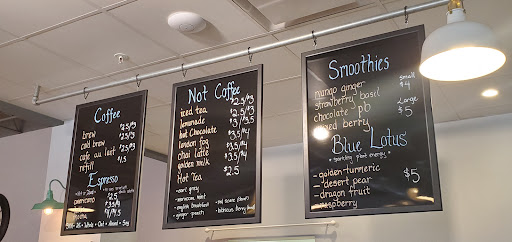 Coffee
brew $2.5/$3
cold brew $2.5/$3
cafe au lait $2.5/$3
refill $1.5
Espresso
Not Coffee
iced tea $2.5/$3
lemonade
hot chocolate
london fog $3.5/$4
chai latte $3.5/$4
golden milk $3.5/$4
Hot Tea $2.5
- earl grey
- moroccan mint
- english breakfast
- ginger peach
- hibiscus berry
Smoothies
mango ginger
strawberry basil
chocolate - pb
mixed berry
small
$4
Large
$5
Blue Lotus
sparkling plant energy
- golden turmeric
- desert pear
- dragon fruit
- raspberry
$5